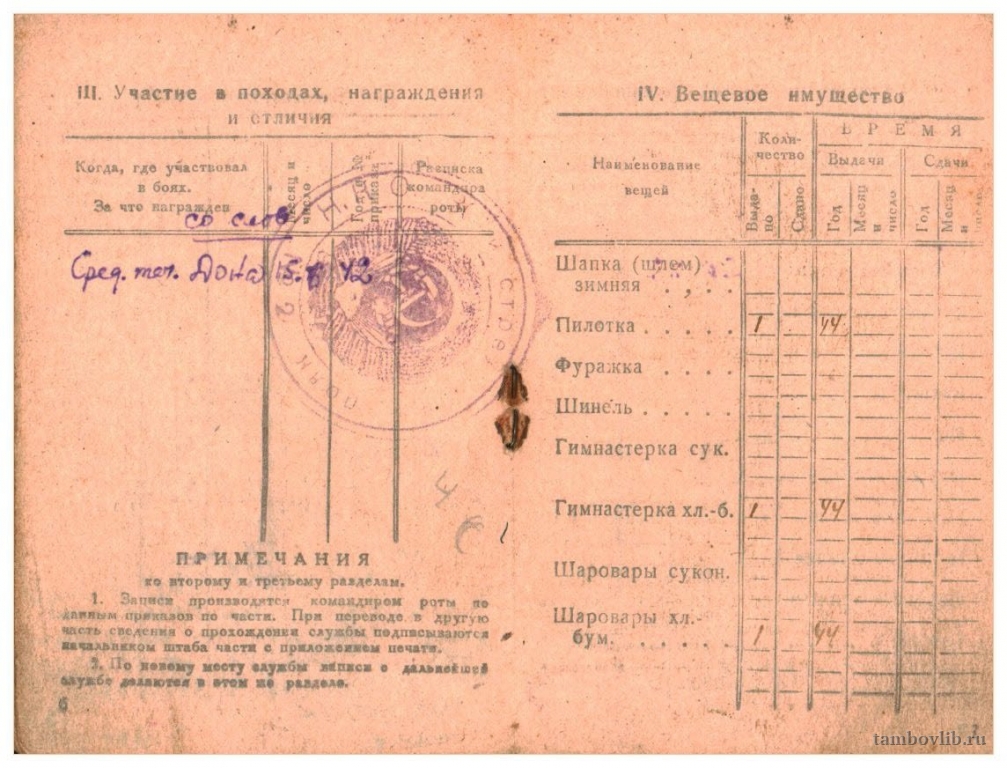 III. Участие в походах, награждения
и отличия
Когда, где участвовал
в боях.
За что награжден
месяц и
число
Год и №
приказа
Расписка
командира
роты
со слов
Сред. теч. Дона 15. 42
ПРИМЕЧАНИЯ
ко второму и третьему разделам.
1. Записи производятся командиром роты по
данным приказов по части. При переводе в другую
часть сведения о прохождении службы подписываются
начальником штаба части с приложением печати.
2. По новому месту службы записи о дальнейшей
службе делаются в этом же разделе.
6
IV. Вещевое имущество
Наименование
вещей
Коли-
чество
ВРЕМЯ
Выдачи
Сдачи
Выда-
но
Сдано
Год
Месяц
и
число
Год
Месяц
и
число
Шапка (шлем)
зимняя . , . .
Пилотка . . . . . 1 44
Фуражка . . . .
Шинель . . . . .
Гимнастерка сук.
Гимнастерка хл.-б. 1 44
Шаровары сукон.
Шаровары хл.-
бум. . . . . . 1 44
7
tambovlib.ru